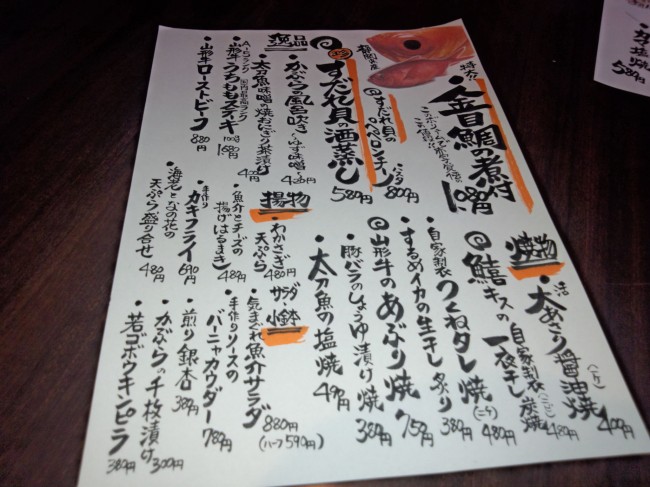 静岡産
特大!
金目鯛の煮付
1080円
すだれ貝のペペロンチーノ
パスタ
800円
すだれ貝の酒蒸し
580円
逸品
かぶらの風呂吹き〜ゆず味噌〜
480円
太刀魚味噌の焼おにぎり茶漬け
400円
A-5ランク
山形牛うちももステーキ
100g
1680円
山形牛ローストビーフ
880円
焼物
活大あさり醤油焼
(一ケ)
400円
鱚キスの一夜干し
自家製炭焼
480円
自家製つくねタレ焼
(二ケ)
480円
するめイカの生干し炙り
380円
山形牛のあぶり焼
750円
豚バラのしょうゆ漬け焼
380円
太刀魚の塩焼
490円
揚物
わかさぎ天ぷら
480円
魚介とチーズの揚げはるまき
480円
手作りカキフライ
690円
海老と菜の花の天ぷら盛り合せ
480円
サラダ・小鉢
気まぐれ魚介サラダ
880円
(ハーフ590円)
手作りソースのバーニャカウダー
780円
煎り銀杏
380円
かぶらの千枚漬け
300円
若ゴボウキンピラ
380円
塩焼
580円